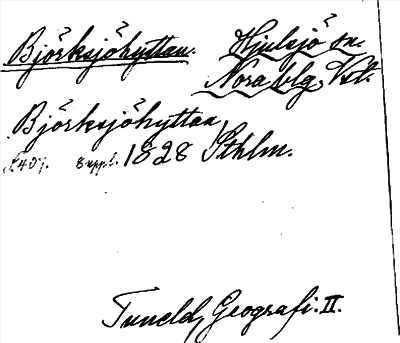 Björksjöhyttan. Hjulsjö sn.
Nora blg, Vstl.
Björksjöhyttan
S. 407. Suppl. 1828 Sthlm.
Tuneld, Geografi. II.